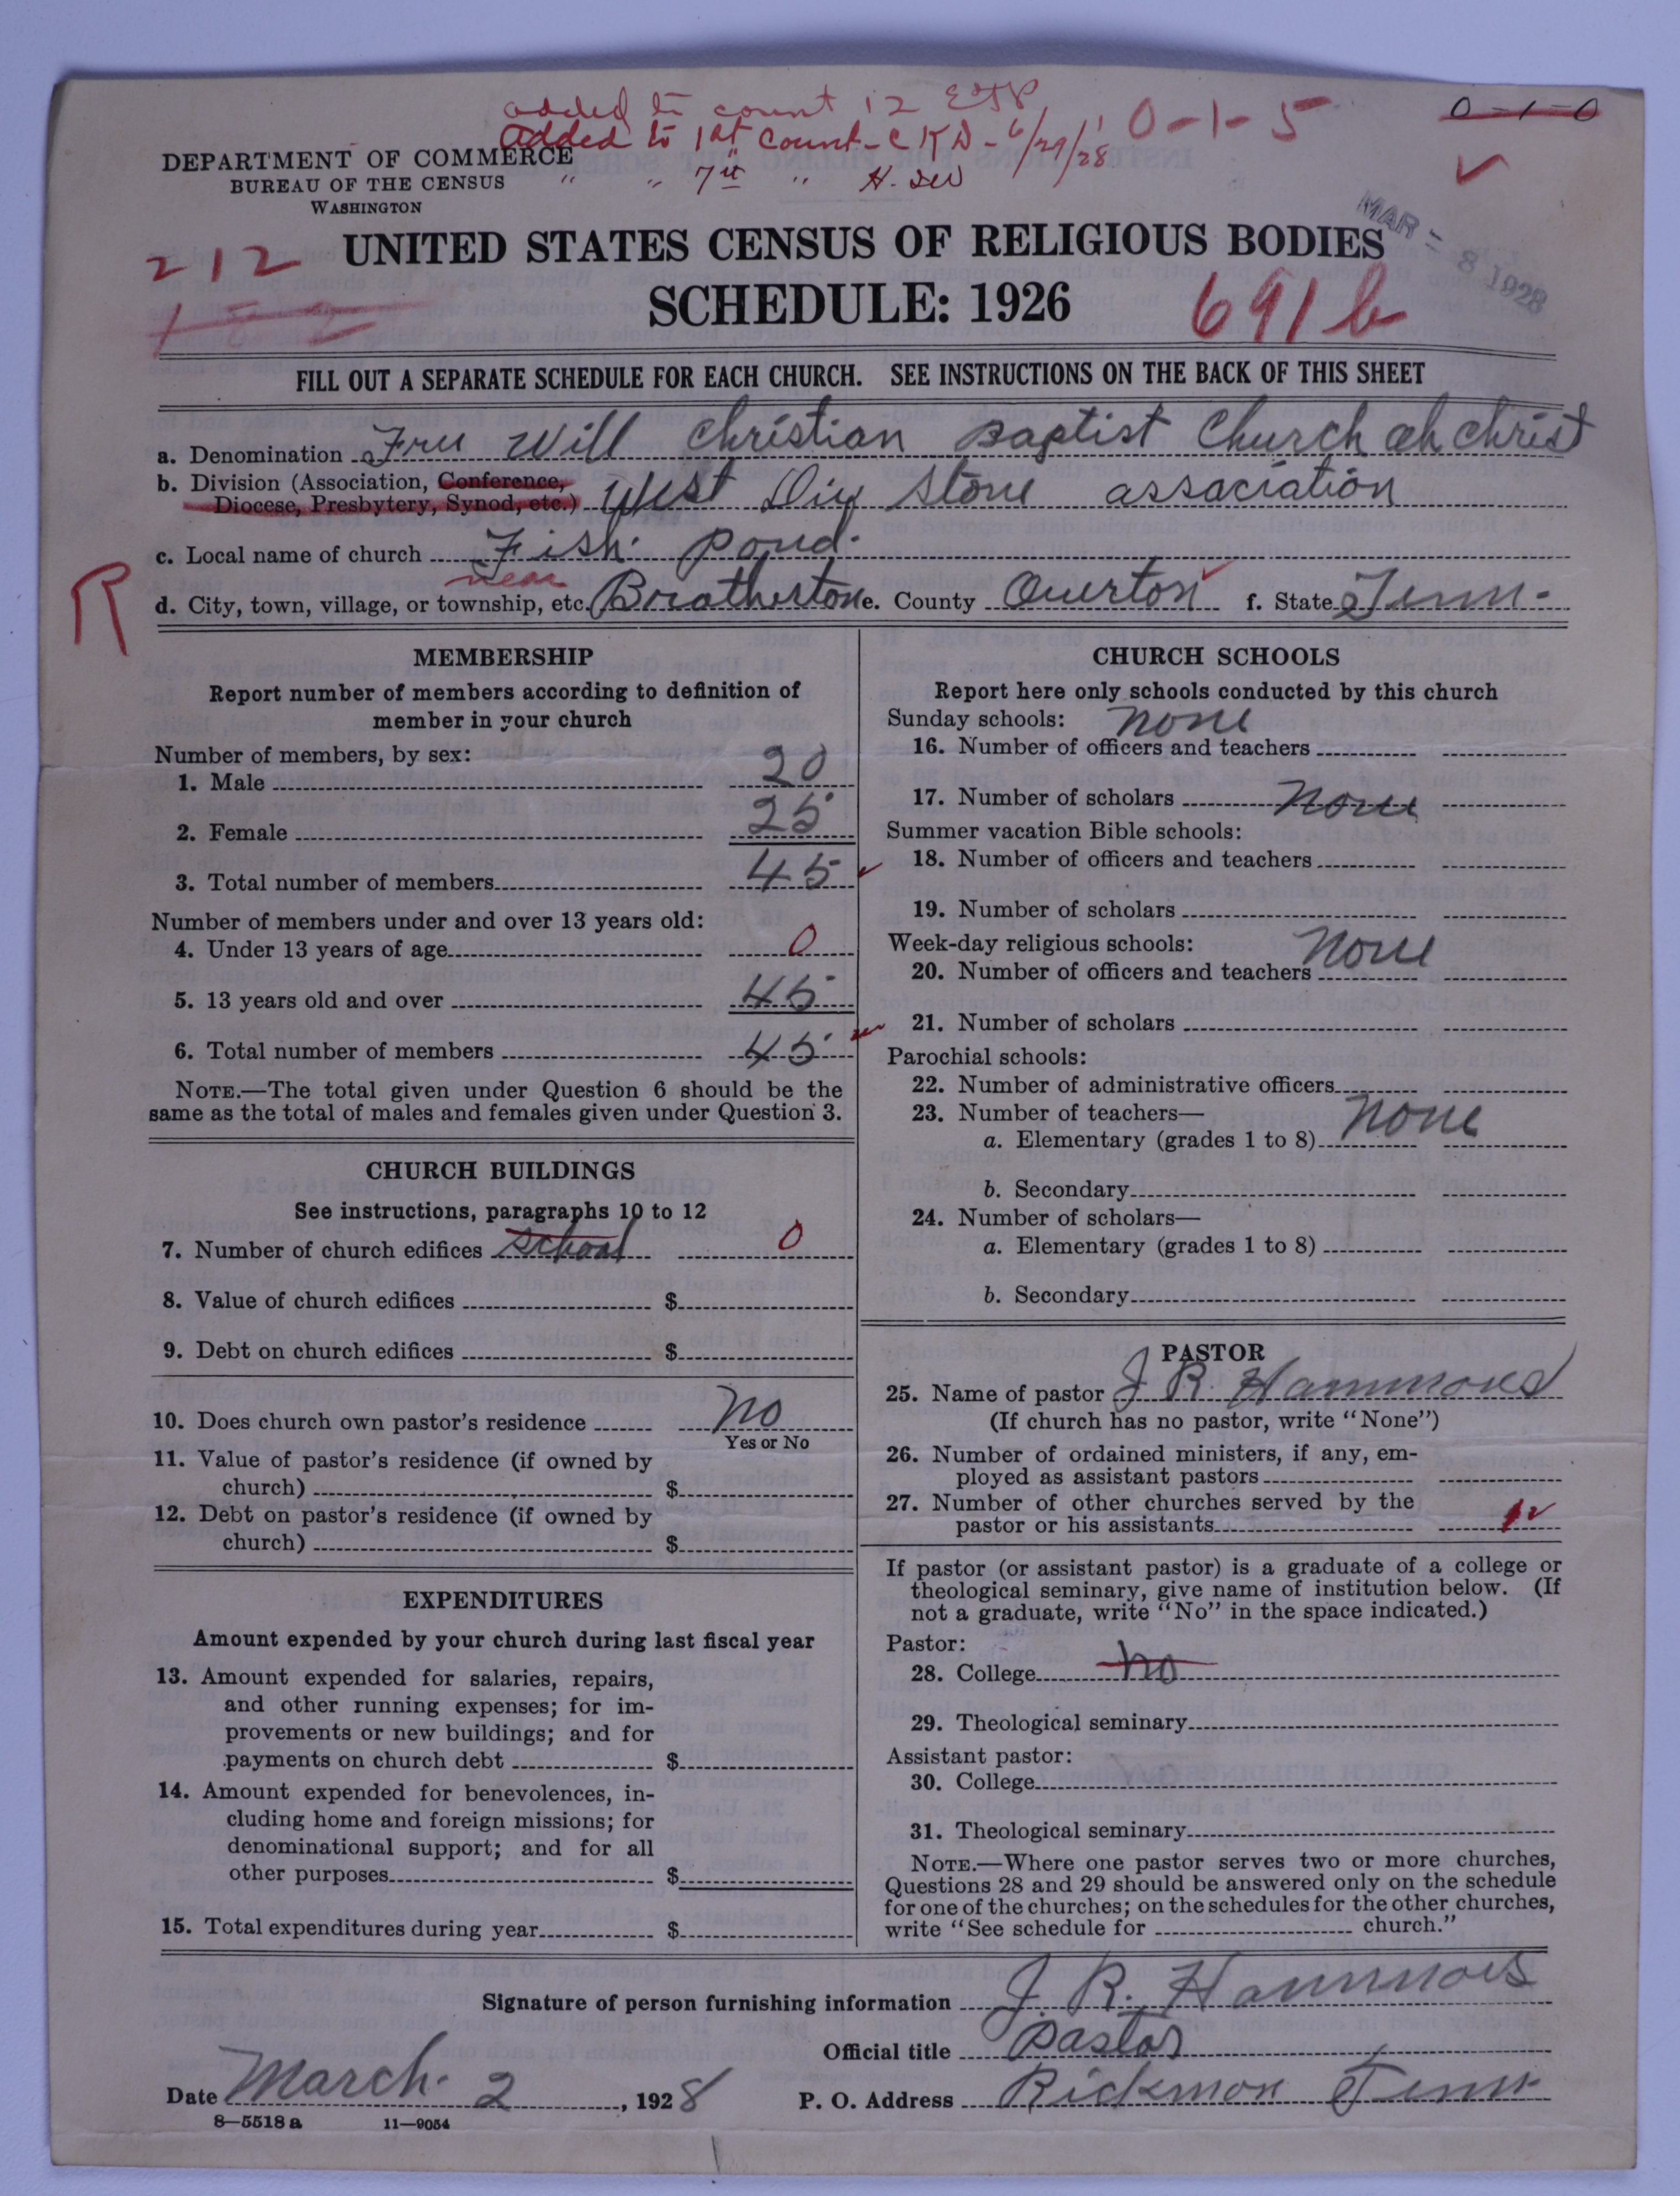 added to count 12 EJP
added to 1st Count - CKD - 6/29/28
" " 7th " H. SW
0-1-5
0-1-0
DEPARTMENT OF COMMERCE
BUREAU OF THE CENSUS
WASHINGTON
MAR - 8 1928
212
UNITED STATES CENSUS OF RELIGIOUS BODIES
SCHEDULE: 1926
691b
FILL OUT A SEPARATE SCHEDULE FOR EACH CHURCH. SEE INSTRUCTIONS ON THE BACK OF THIS SHEET
a. Denomination Free Will Christian Baptist Church of Christ
b. Division (Association, Conference,
Diocese, Presbytery, Synod, etc.) West Div Stone association
c. Local name of church Fish Pond.
R
near
d. City, town, village, or township, etc. Brotherton e. County Overton f. State Tenn.
MEMBERSHIP
Report number of members according to definition of
member in your church
Number of members, by sex:
1. Male 20
2. Female 25
3. Total number of members 45
Number of members under and over 13 years old:
4. Under 13 years of age 0
5. 13 years old and over 45
6. Total number of members 45
NOTE.—The total given under Question 6 should be the
same as the total of males and females given under Question 3.
CHURCH BUILDINGS
See instructions, paragraphs 10 to 12
7. Number of church edifices school 0
8. Value of church edifices $
9. Debt on church edifices $
10. Does church own pastor's residence no
Yes or No
11. Value of pastor's residence (if owned by
church) $
12. Debt on pastor's residence (if owned by
church) $
EXPENDITURES
Amount expended by your church during last fiscal year
13. Amount expended for salaries, repairs,
and other running expenses; for im-
provements or new buildings; and for
payments on church debt $
14. Amount expended for benevolences, in-
cluding home and foreign missions; for
denominational support; and for all
other purposes $
15. Total expenditures during year $
CHURCH SCHOOLS
Report here only schools conducted by this church
Sunday schools: none
16. Number of officers and teachers
17. Number of scholars none
Summer vacation Bible schools:
18. Number of officers and teachers
19. Number of scholars
Week-day religious schools: none
20. Number of officers and teachers
21. Number of scholars
Parochial schools:
22. Number of administrative officers
23. Number of teachers—
a. Elementary (grades 1 to 8) none
b. Secondary
24. Number of scholars—
a. Elementary (grades 1 to 8)
b. Secondary
PASTOR
25. Name of pastor J. R. Hammons
(If church has no pastor, write "None")
26. Number of ordained ministers, if any, em-
ployed as assistant pastors
27. Number of other churches served by the
pastor or his assistants
If pastor (or assistant pastor) is a graduate of a college or
theological seminary, give name of institution below. (If
not a graduate, write "No" in the space indicated.)
Pastor:
28. College no
29. Theological seminary
Assistant pastor:
30. College
31. Theological seminary
NOTE.—Where one pastor serves two or more churches,
Questions 28 and 29 should be answered only on the schedule
for one of the churches; on the schedules for the other churches,
write "See schedule for church."
Signature of person furnishing information J. R. Hammons
Official title pastor
Date March. 2, 1928 P. O. Address Rickman Tenn
8—5518a 11—9054